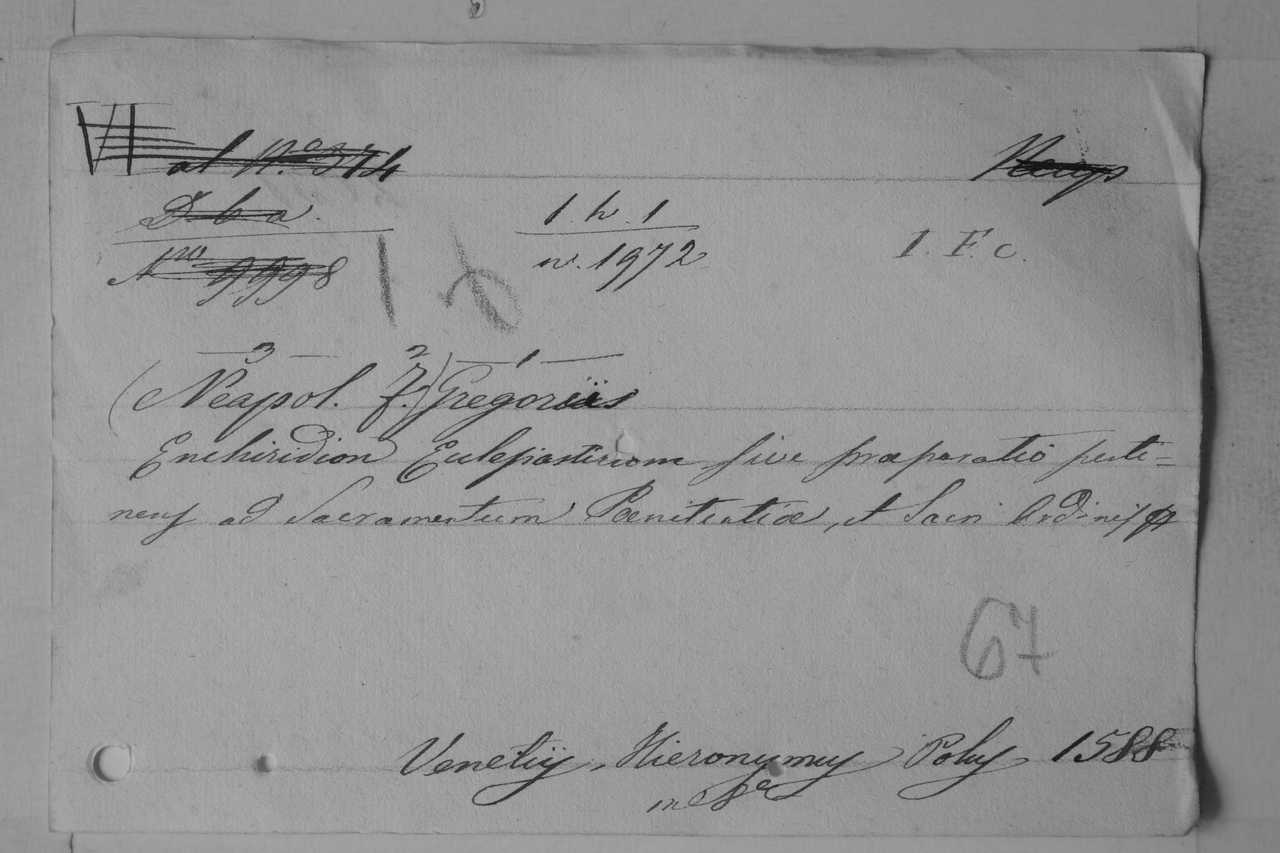 VII al N.o 374
D b a. 1. h. 1 I. F. c.
Nro 9998 n. 1972
1
3 2 1
(Neapol. F.) Gregorius
Enchiridion Eclesiasticum sive præparatio perti=
nens ad Sacramentum Pœnitentiæ, et Sacri Ordinis
67
Venetijs, Hieronymus Polus 1588
in 8o